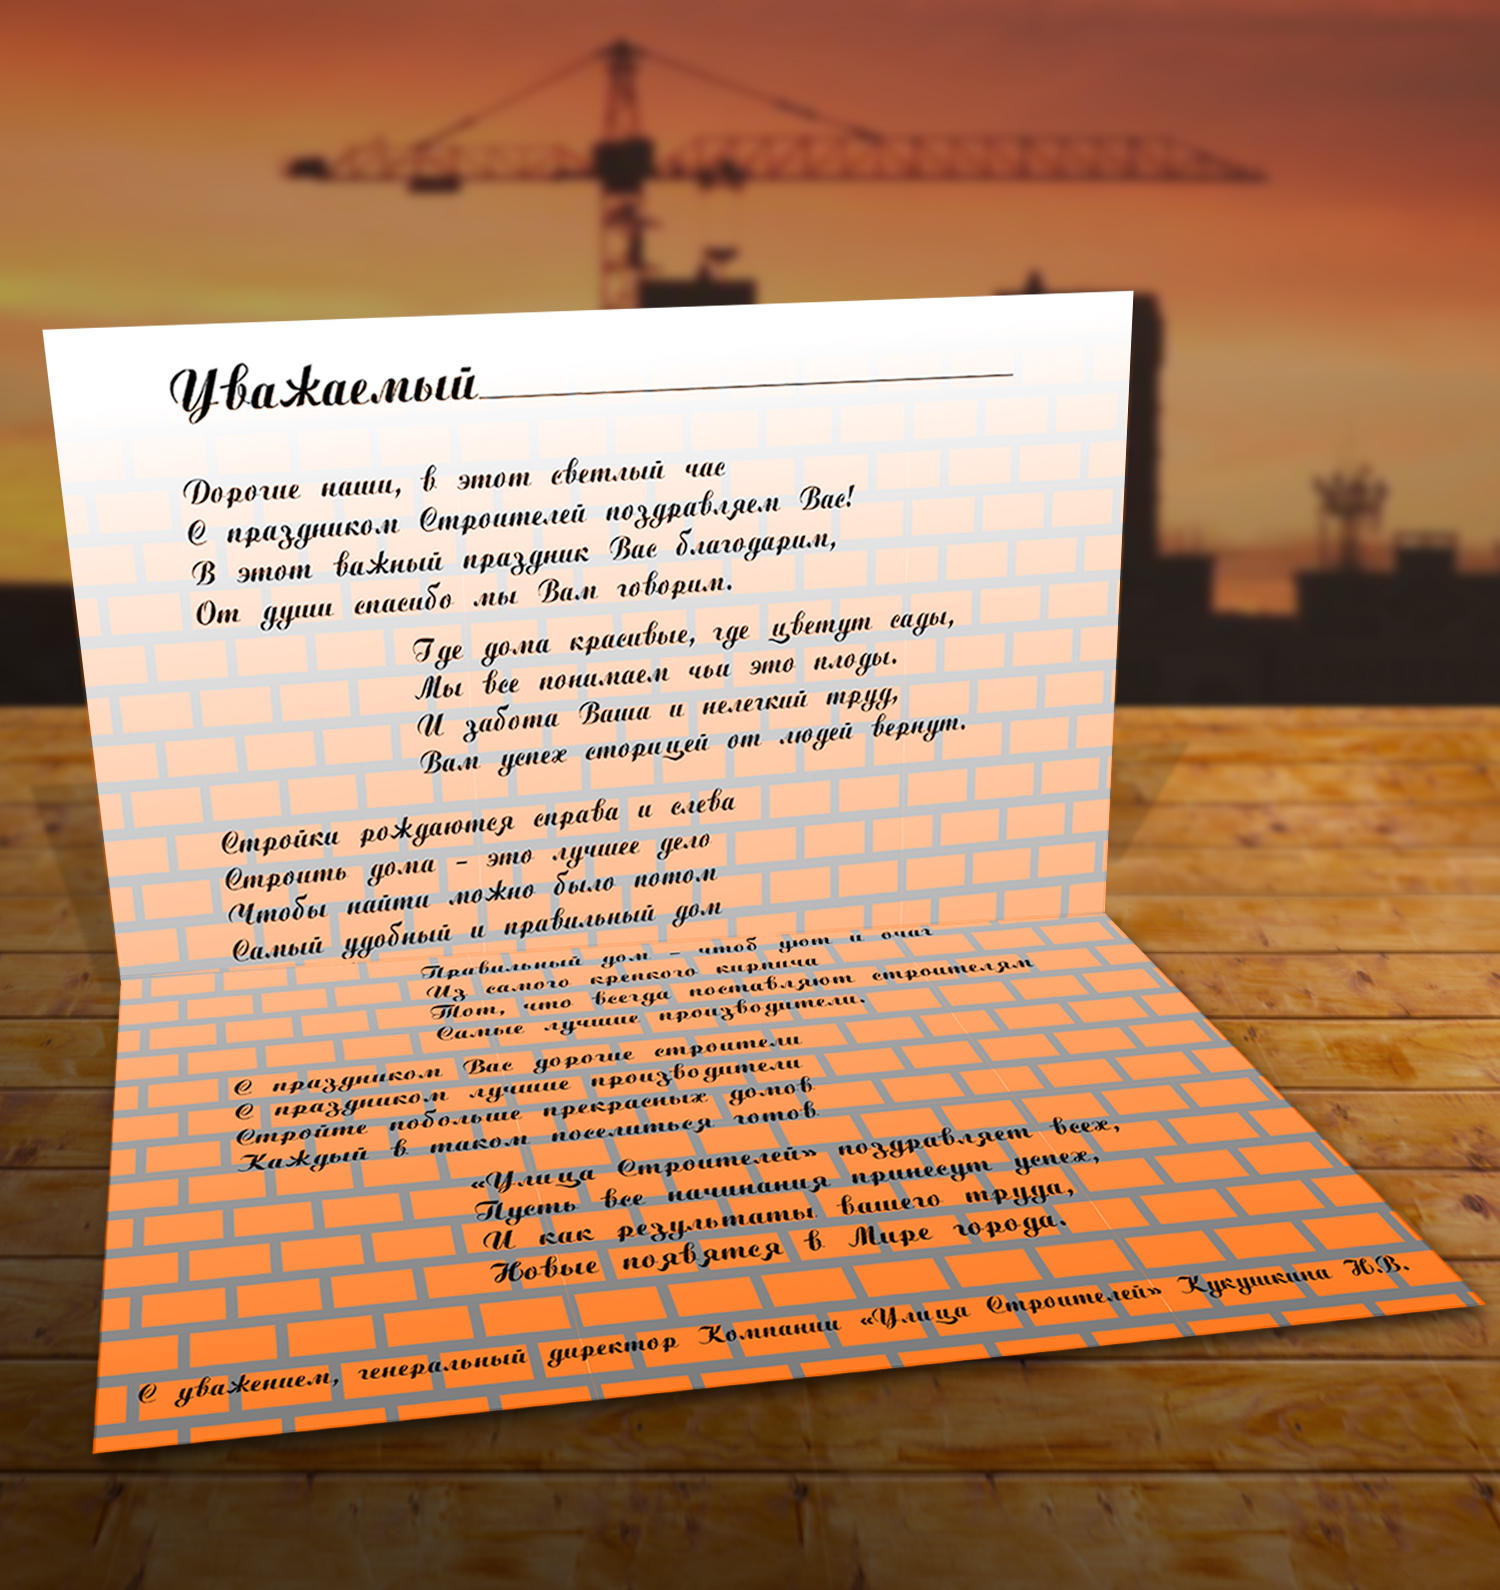 Уважаемый
Дорогие наши, в этот светлый час
С праздником Строителей поздравляем Вас!
В этот важный праздник Вас благодарим,
От души спасибо мы Вам говорим.
Где дома красивые, где цветут сады,
Мы все понимаем чьи это плоды.
И забота Ваша и нелегкий труд,
Вам успех сторицей от людей вернут.
Стройки рождаются справа и слева
Строить дома - это лучшее дело
Чтобы найти можно было потом
Самый удобный и правильный дом
Правильный дом - чтоб уют и очаг
Из самого крепкого кирпича
Тот, что всегда поставляют строителям
Самые лучшие производители.
С праздником Вас дорогие строители
С праздником лучшие производители
Стройте побольше прекрасных домов
Каждый в таком поселиться готов
«Улица Строителей» поздравляет всех,
Пусть все начинания принесут успех,
И как результаты вашего труда,
Новые появятся в Мире города.
С уважением, генеральный директор Компании «Улица Строителей» Кукушкина Н.В.